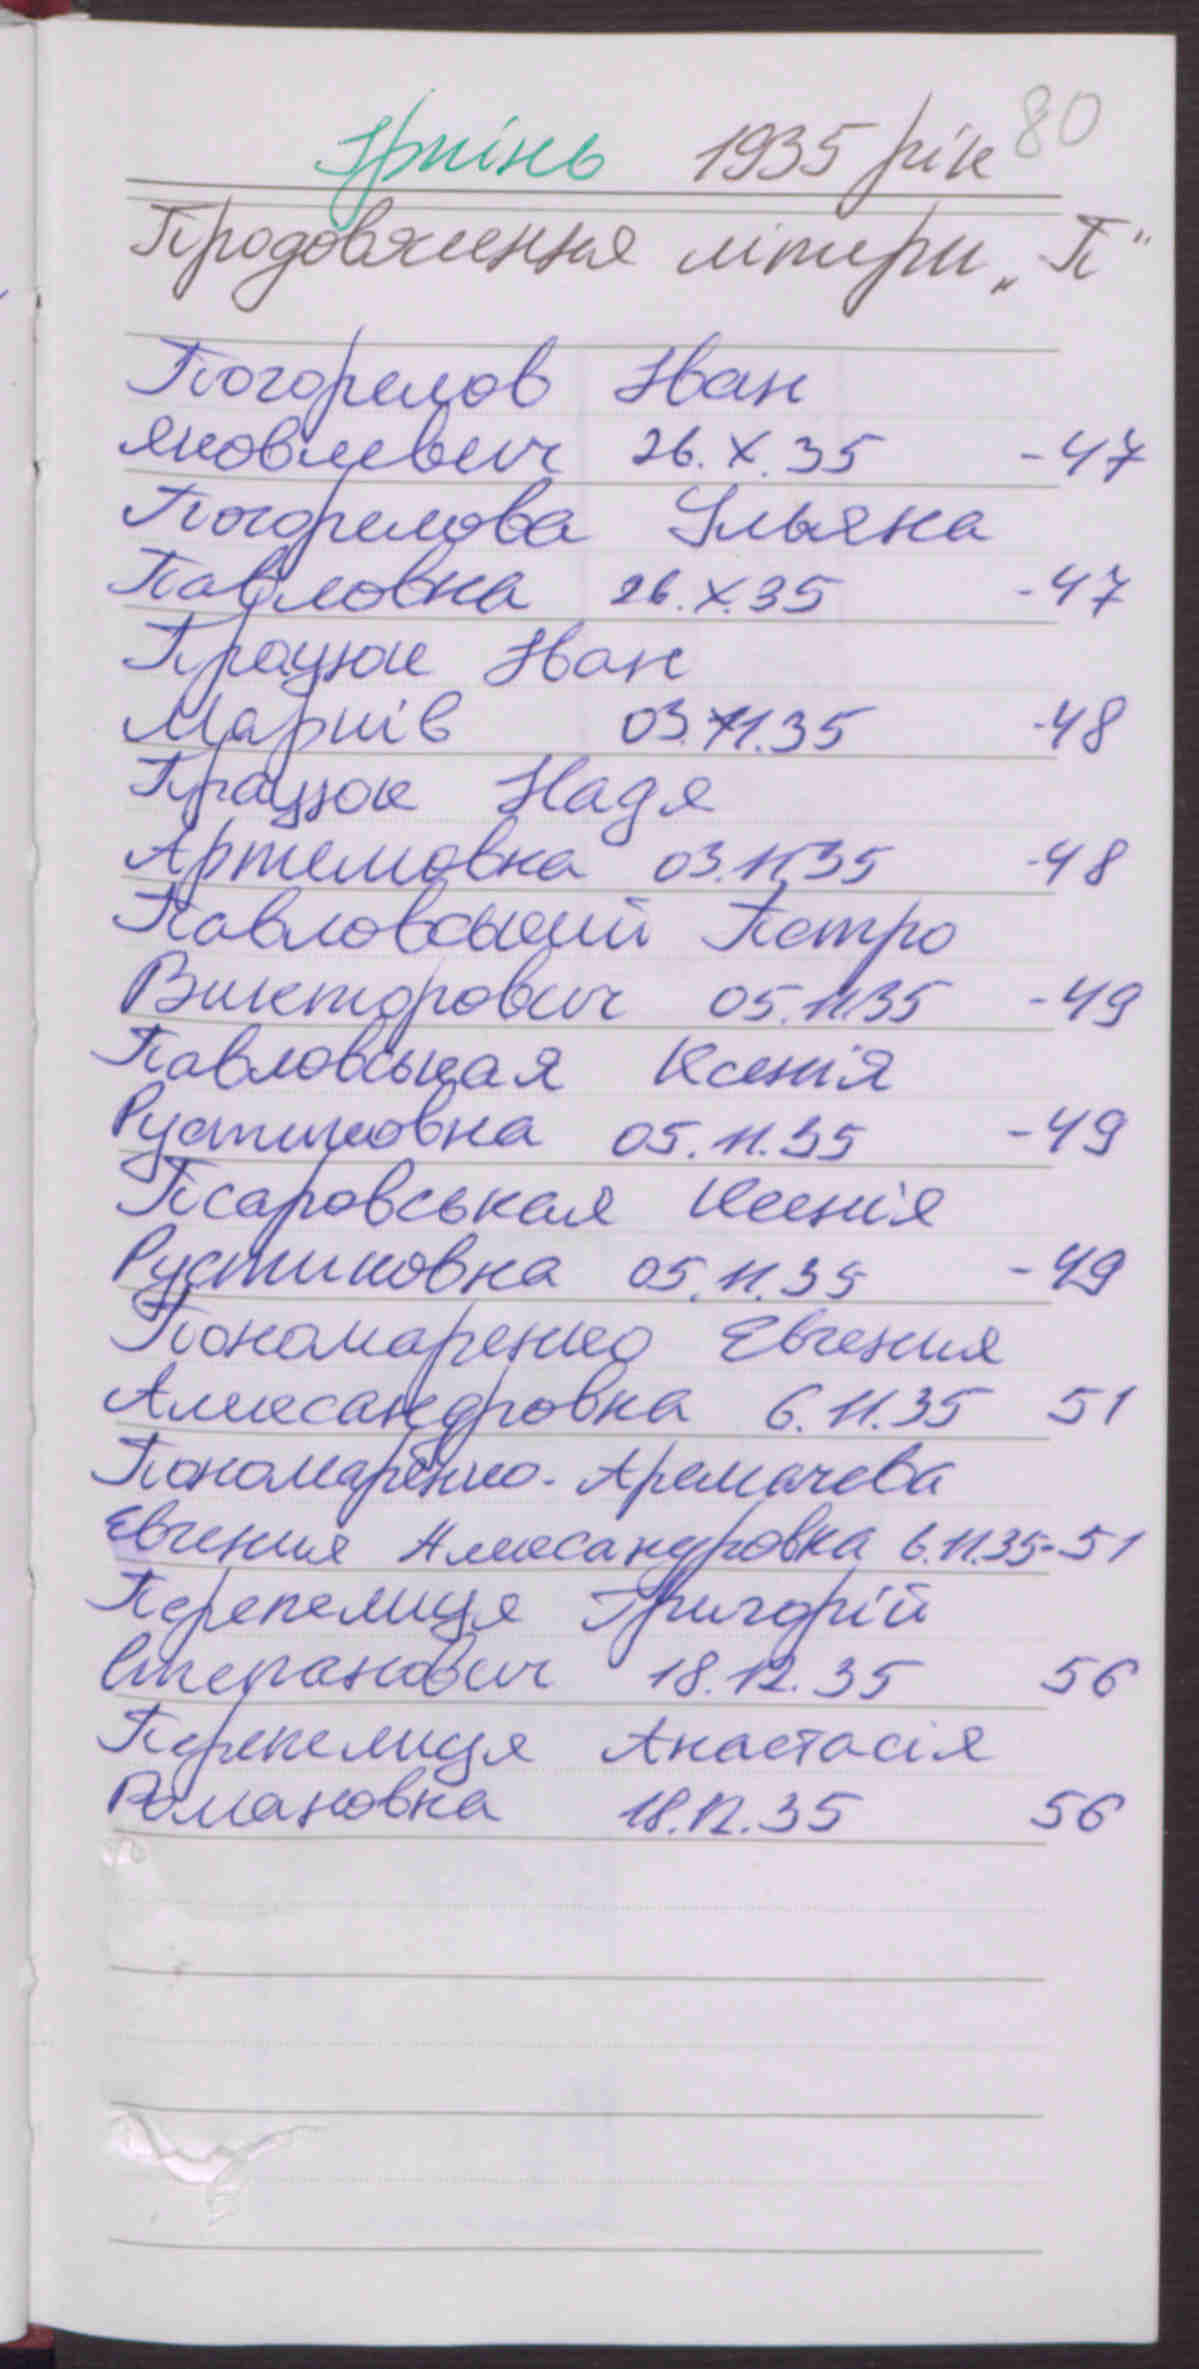 80
Ірпінь 1935 рік
Продовження літери „П"
Погорелов Иван
Яковлевич 26.X.35 -47
Погорелова Ульяна
Павловна 26.X.35 -47
Працюк Иван
Марків 03.11.35 -48
Працюк Надя
Артемовна 03.11.35 -48
Павловський Петро
Викторович 05.11.35 -49
Павловськая Ксенія
Рустиковна 05.11.35 -49
Псаровськая Ксенія
Рустиковна 05.11.35 -49
Пономаренко Евгения
Александровна 6.11.35 51
Пономаренко-
Евгения Александровна 6.11.35-51
Перепелиця Григорій
Степанович 18.12.35 56
Перепелиця Анастасія
Романовна 18.12.35 56